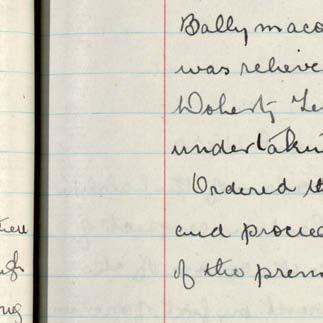 Ballymaco
was relieve
Doherty Le
undertakin
Ordered th
and procee
of the prem